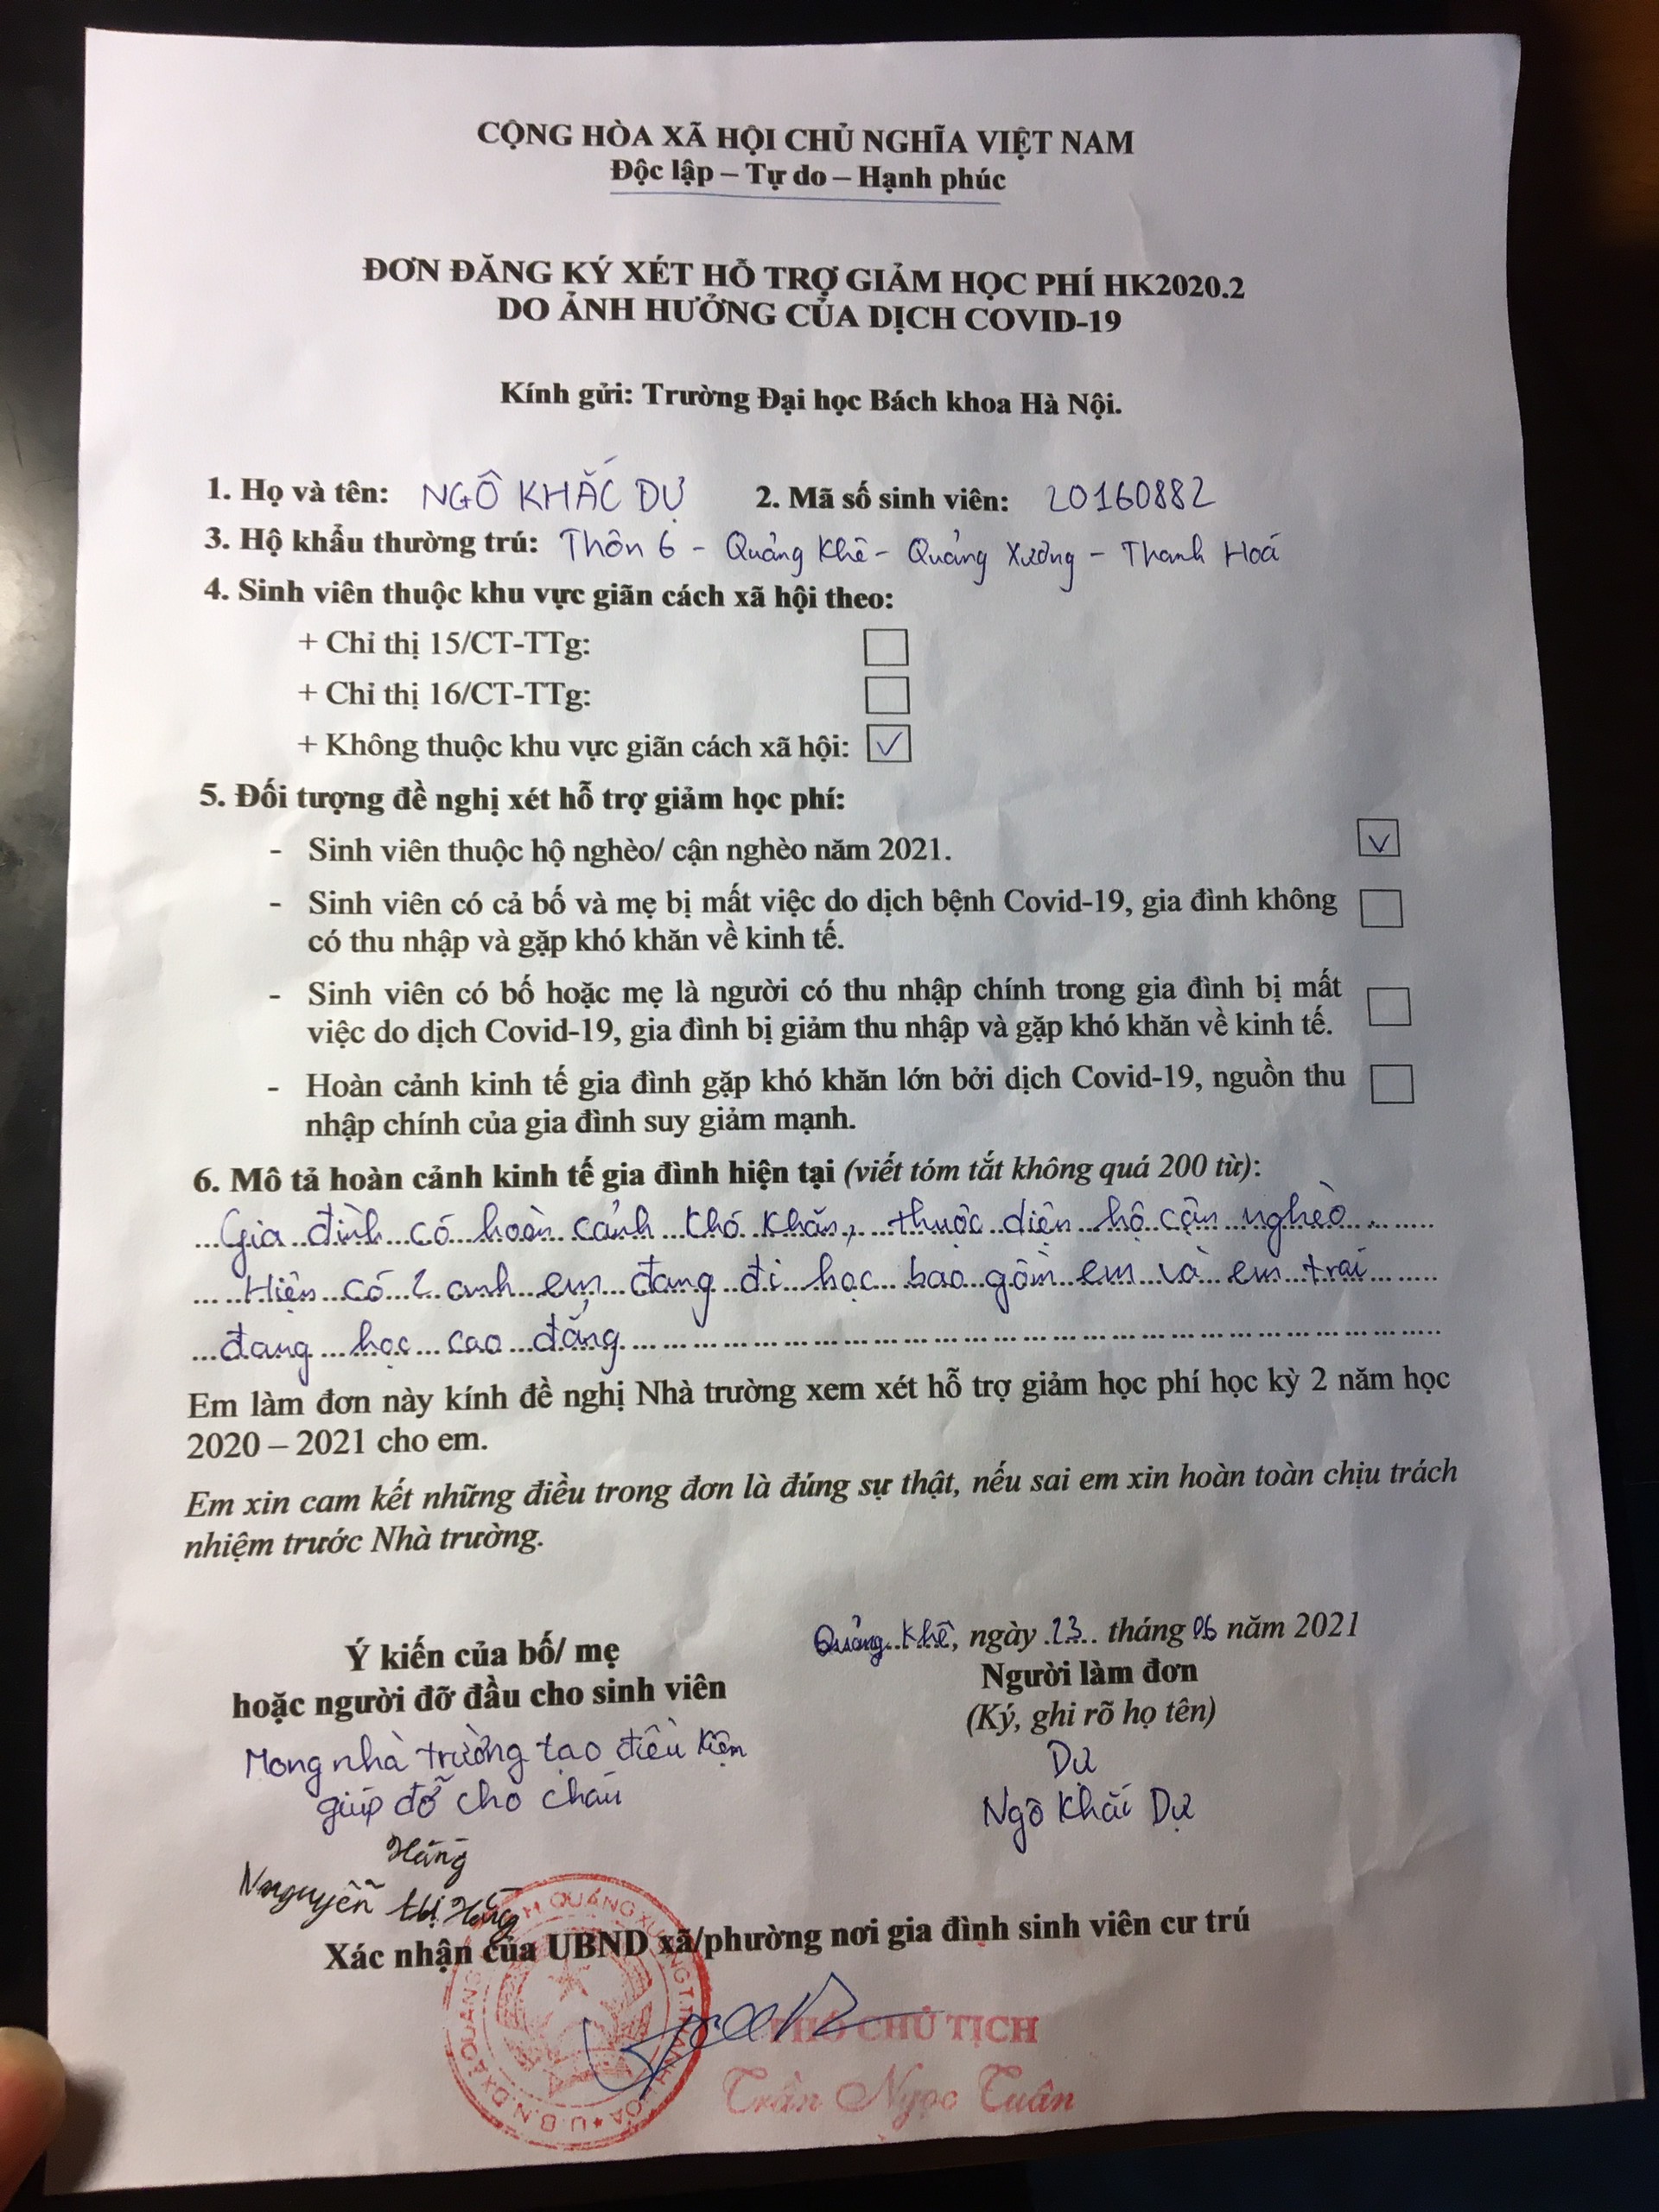 CỘNG HÒA XÃ HỘI CHỦ NGHĨA VIỆT NAM
Độc lập – Tự do – Hạnh phúc
ĐƠN ĐĂNG KÝ XÉT HỖ TRỢ GIẢM HỌC PHÍ HK2020.2
DO ẢNH HƯỞNG CỦA DỊCH COVID-19
Kính gửi: Trường Đại học Bách khoa Hà Nội.
1. Họ và tên: NGÔ KHẮC DỰ 2. Mã số sinh viên: 20160882
3. Hộ khẩu thường trú: Thôn 6 - Quảng Khê - Quảng Xương - Thanh Hoá
4. Sinh viên thuộc khu vực giãn cách xã hội theo:
+ Chỉ thị 15/CT-TTg:
+ Chỉ thị 16/CT-TTg:
+ Không thuộc khu vực giãn cách xã hội: ✓
5. Đối tượng đề nghị xét hỗ trợ giảm học phí:
- Sinh viên thuộc hộ nghèo/ cận nghèo năm 2021. ✓
- Sinh viên có cả bố và mẹ bị mất việc do dịch bệnh Covid-19, gia đình không
có thu nhập và gặp khó khăn về kinh tế.
- Sinh viên có bố hoặc mẹ là người có thu nhập chính trong gia đình bị mất
việc do dịch Covid-19, gia đình bị giảm thu nhập và gặp khó khăn về kinh tế.
- Hoàn cảnh kinh tế gia đình gặp khó khăn lớn bởi dịch Covid-19, nguồn thu
nhập chính của gia đình suy giảm mạnh.
6. Mô tả hoàn cảnh kinh tế gia đình hiện tại (viết tóm tắt không quá 200 từ):
Gia đình có hoàn cảnh khó khăn, thuộc diện hộ cận nghèo.
Hiện có 2 anh em đang đi học bao gồm em và em trai
đang học cao đẳng
Em làm đơn này kính đề nghị Nhà trường xem xét hỗ trợ giảm học phí học kỳ 2 năm học
2020 – 2021 cho em.
Em xin cam kết những điều trong đơn là đúng sự thật, nếu sai em xin hoàn toàn chịu trách
nhiệm trước Nhà trường.
Quảng Khê, ngày 23 tháng 06 năm 2021
Ý kiến của bố/ mẹ
hoặc người đỡ đầu cho sinh viên
Mong nhà trường tạo điều kiện
giúp đỡ cho cháu
Hằng
Nguyễn thị Hằng
Người làm đơn
(Ký, ghi rõ họ tên)
Dự
Ngô Khắc Dự
Xác nhận của UBND xã/phường nơi gia đình sinh viên cư trú
PHÓ CHỦ TỊCH
Trần Ngọc Tuân